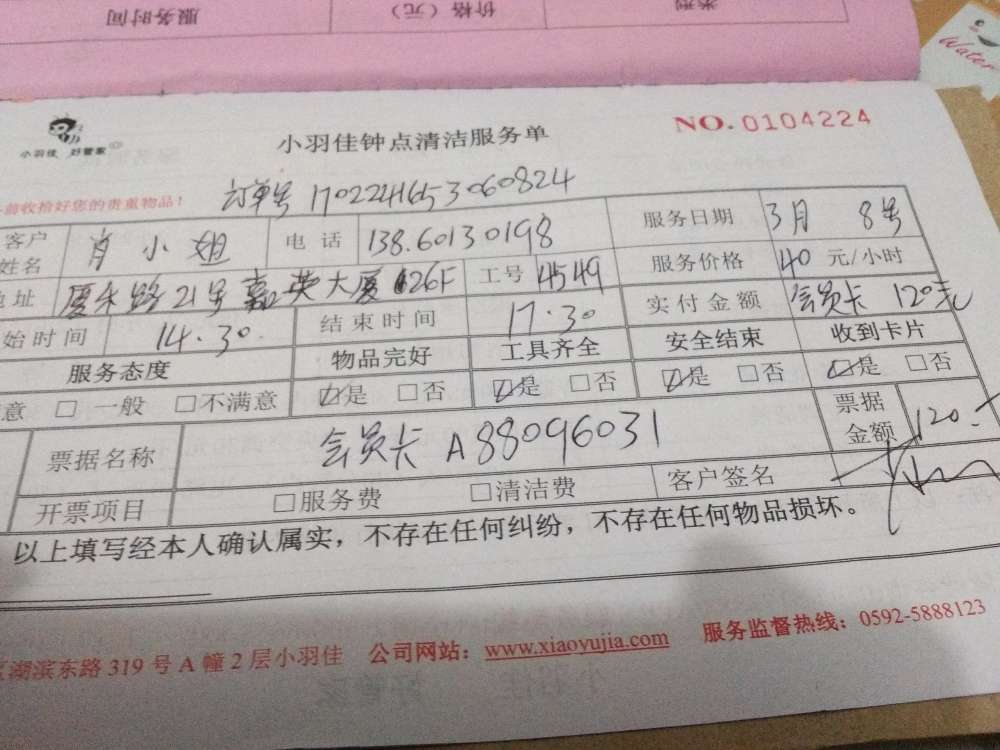 类型 价格（元） 服务时间
Water
小羽佳 好管家
小羽佳钟点清洁服务单
NO.0104224
前收拾好您的贵重物品！
订单号 1702241653060824
客户姓名 肖小姐 电话 13860130198 服务日期 3月 8号
地址 厦禾路21号嘉英大厦26F 工号 4549 服务价格 40 元/小时
始时间 14.30 结束时间 17.30 实付金额 会员卡 120元
服务态度 物品完好 工具齐全 安全结束 收到卡片
意 □ 一般 □不满意 ☑是 □否 ☑是 □否 ☑是 □否 ☑是 □否
票据名称 会员卡 A88096031 票据金额 120.-
开票项目 □服务费 □清洁费 客户签名
以上填写经本人确认属实，不存在任何纠纷，不存在任何物品损坏。
湖滨东路 319 号 A 幢 2 层小羽佳 公司网站：www.xiaoyujia.com 服务监督热线：0592-5888123